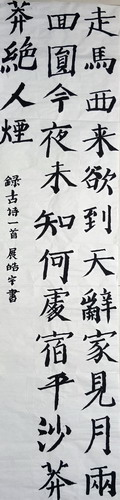 走馬西来欲到天辭家見月兩
回圓今夜未知何處宿平沙莽
莽絕人煙
錄古诗一首 展皓宇書